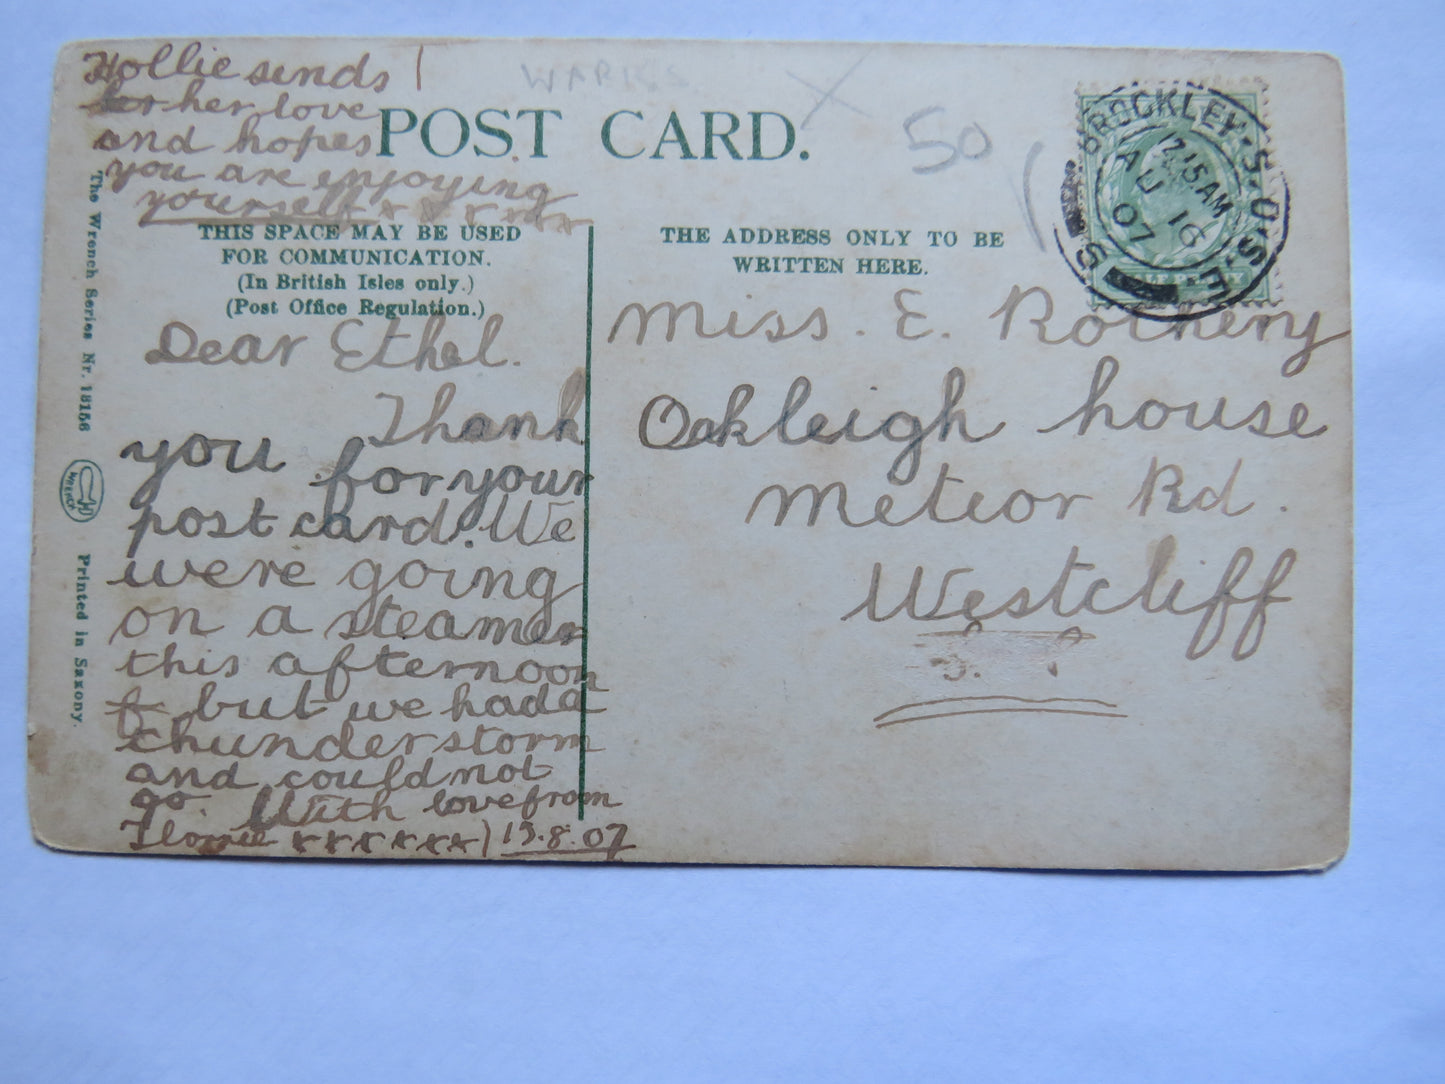 Hollie sends
her love
and hopes
you are enjoying
yourself x x x x x x
WARKS
POST CARD.
50
BROCKLEY.S.O.S.E.
12.15AM
AU 16
07
S
THIS SPACE MAY BE USED
FOR COMMUNICATION.
(In British Isles only.)
(Post Office Regulation.)
THE ADDRESS ONLY TO BE
WRITTEN HERE.
Dear Ethel.
Thank
you for your
post card. We
were going
on a steamer
this afternoon
but we had a
thunderstorm
and could not
go With love from
Florrie x x x x x x) 15.8.07
Miss. E. Rothery
Oakleigh house
Meteor Rd.
Westcliff
The Wrench Series Nr. 18156
WRENCH
Printed in Saxony.